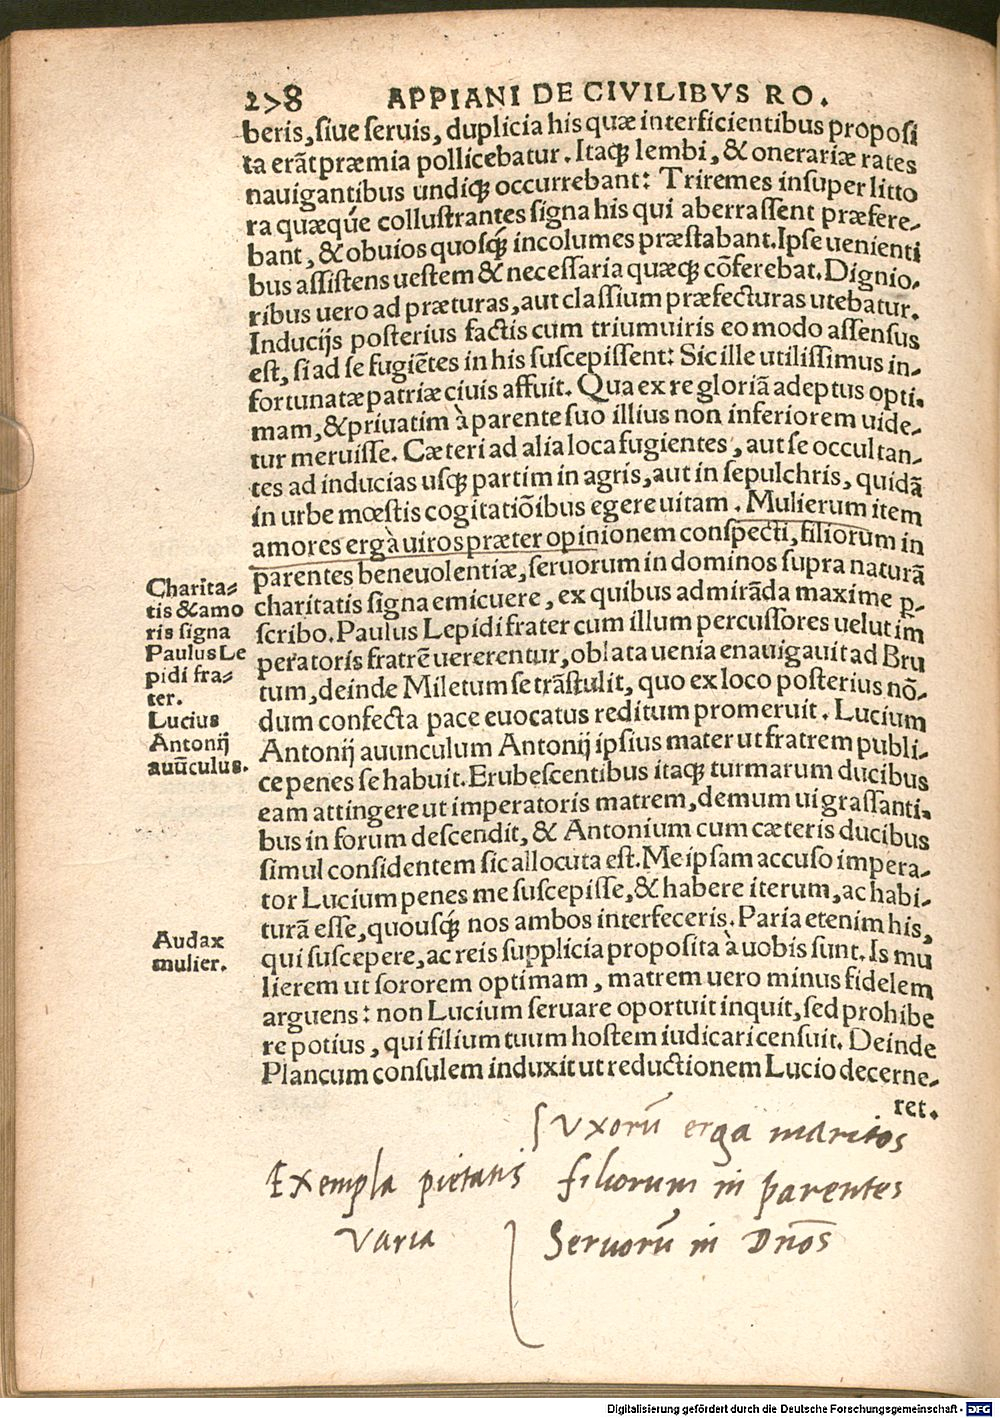 2>8 APPIANI DE CIVILIBVS RO.
beris, siue seruis, duplicia his quæ interficientibus proposi
ta erāt præmia pollicebatur. Itaq; lembi, & onerariæ rates
nauigantibus undiq; occurrebant: Triremes insuper litto
ra quæque collustrantes signa his qui aberrassent præfere-
bant, & obuios quosq; incolumes præstabant. Ipse uenienti
bus assistens uestem & necessaria quæq; cōferebat. Dignio-
ribus uero ad præturas, aut classium præfecturas utebatur.
Inducijs posterius factis cum triumuiris eo modo assensus
est, si ad se fugiētes in his suscepissent: Sic ille utilissimus in-
fortunatæ patriæ ciuis affuit. Qua ex re gloriā adeptus opti-
mam, & priuatim à parente suo illius non inferiorem uide-
tur meruisse. Cæteri ad alia loca fugientes, aut se occultan-
tes ad inducias usq; partim in agris, aut in sepulchris, quidā
in urbe mœstis cogitatiōibus egere uitam. Mulierum item
amores ergà uiros præter opinionem conspecti, filiorum in
parentes beneuolentiæ, seruorum in dominos supra naturā
Charita-
tis & amo
ris signa
charitatis signa emicuere, ex quibus admirāda maxime p-
scribo. Paulus Lepidi frater cum illum percussores uelut im
Paulus Le
pidi fra-
ter.
peratoris fratrē uererentur, oblata uenia enauigauit ad Bru
tum, deinde Miletum se trāstulit, quo ex loco posterius nō-
Lucius
Antonij
auūculus.
dum confecta pace euocatus reditum promeruit. Lucium
Antonij auunculum Antonij ipsius mater ut fratrem publi-
ce penes se habuit. Erubescentibus itaq; turmarum ducibus
eam attingere ut imperatoris matrem, demum ui grassanti-
bus in forum descendit, & Antonium cum cæteris ducibus
simul considentem sic allocuta est. Me ipsam accuso impera-
tor Lucium penes me suscepisse, & habere iterum, ac habi-
turā esse, quousq; nos ambos interfeceris. Paria etenim his,
Audax
mulier.
qui suscepere, ac reis supplicia proposita à uobis sunt. Is mu
lierem ut sororem optimam, matrem uero minus fidelem
arguens: non Lucium seruare oportuit inquit, sed prohibe
re potius, qui filium tuum hostem iudicari censuit. Deinde
Plancum consulem induxit ut reductionem Lucio decerne-
ret.
Vxorū erga maritos
Exempla pietatis filiorum in parentes
varia Seruorū in Dnōs
Digitalisierung gefördert durch die Deutsche Forschungsgemeinschaft - DFG